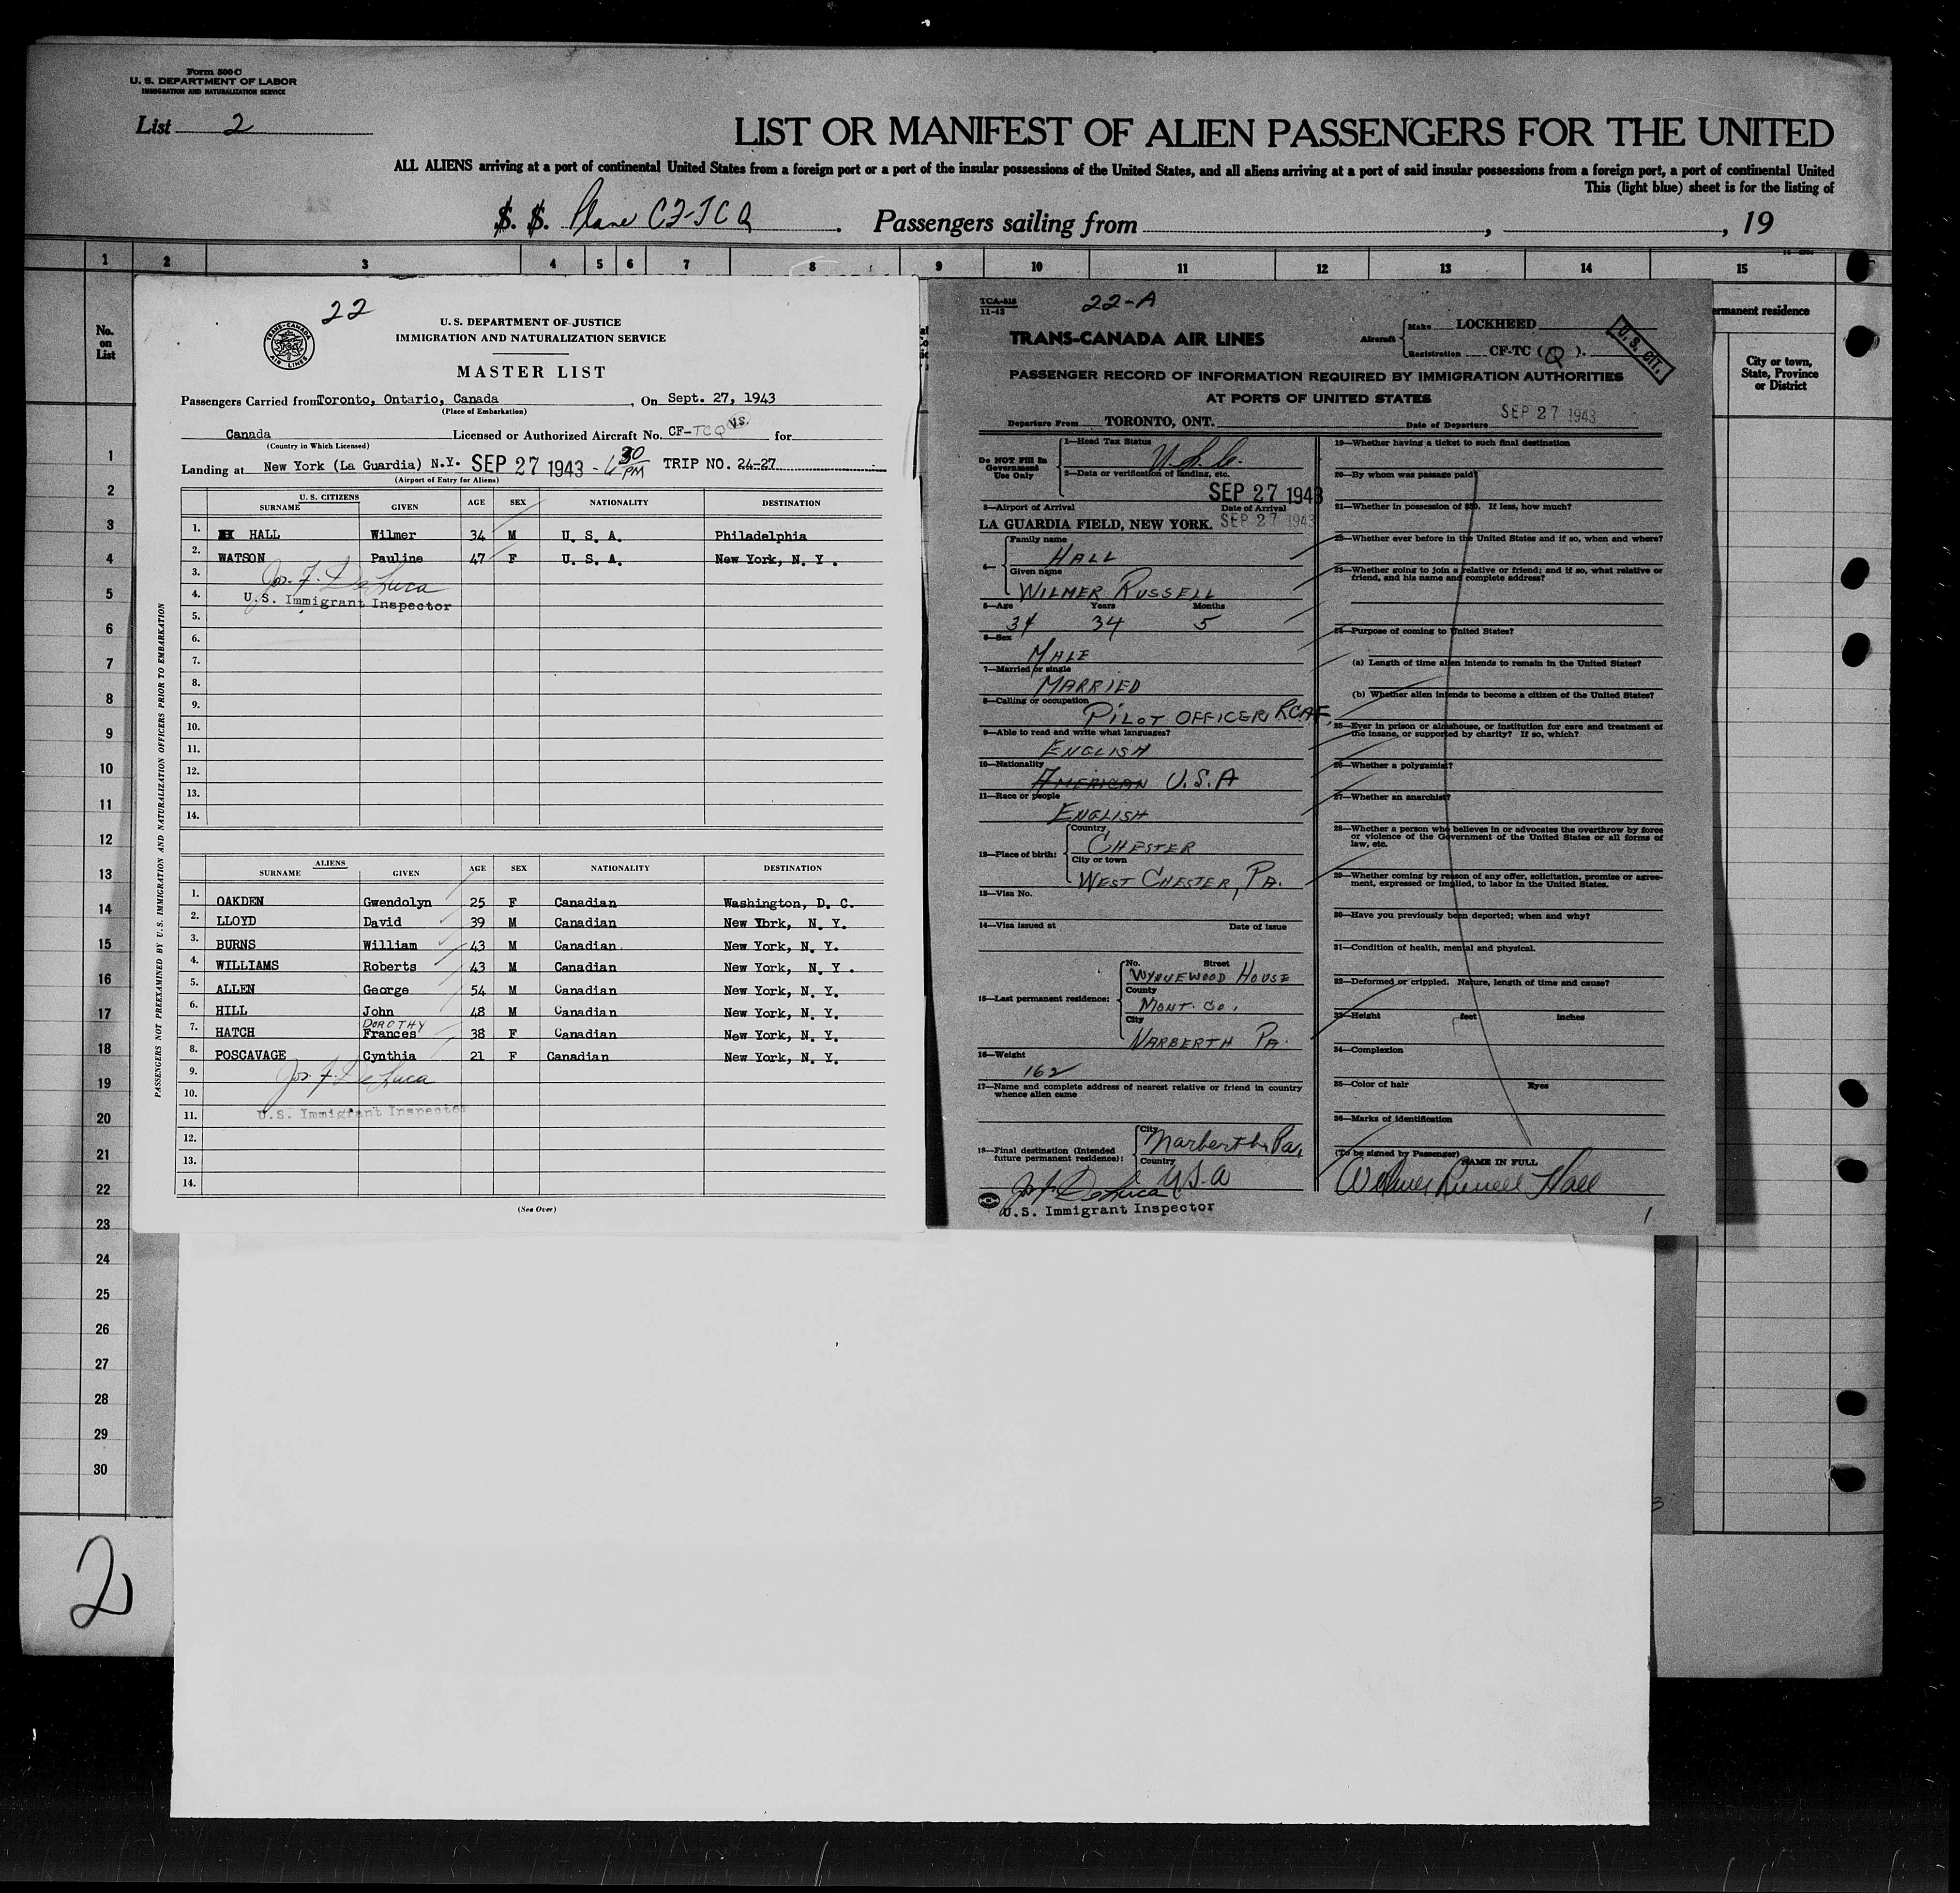 Form 500 C
U. S. DEPARTMENT OF LABOR
IMMIGRATION AND NATURALIZATION SERVICE
List 2
LIST OR MANIFEST OF ALIEN PASSENGERS FOR THE UNITED
ALL ALIENS arriving at a port of continental United States from a foreign port or a port of the insular possessions of the United States, and all aliens arriving at a port of said insular possessions from a foreign port, a port of continental United
This (light blue) sheet is for the listing of
S. S. Plane CF-TCQ. Passengers sailing from , , 19
1 2 3 4 5 6 7 8 9 10 11 12 13 14 15
No. on List
ermanent residence
City or town, State, Province or District
1
2
3
4
5
6
7
8
9
10
11
12
13
14
15
16
17
18
19
20
21
22
23
24
25
26
27
28
29
30
2
22
TRANS-CANADA AIR LINES
U. S. DEPARTMENT OF JUSTICE
IMMIGRATION AND NATURALIZATION SERVICE
MASTER LIST
Passengers Carried from Toronto, Ontario, Canada, On Sept. 27, 1943
(Place of Embarkation)
Canada Licensed or Authorized Aircraft No. CF-TCQ V.S. for
(Country in Which Licensed)
Landing at New York (La Guardia) N.Y. SEP 27 1943 - 6 30 PM TRIP NO. 24-27
(Airport of Entry for Aliens)
PASSENGERS NOT PREEXAMINED BY U.S. IMMIGRATION AND NATURALIZATION OFFICERS PRIOR TO EMBARKATION
U. S. CITIZENS
SURNAME GIVEN AGE SEX NATIONALITY DESTINATION
1. HALL Wilmer 34 M U. S. A. Philadelphia
2. WATSON Pauline 47 F U. S. A. New York, N. Y.
3. Jos. F. DeLuca
4. U.S. Immigrant Inspector
5.
6.
7.
8.
9.
10.
11.
12.
13.
14.
ALIENS
SURNAME GIVEN AGE SEX NATIONALITY DESTINATION
1. OAKDEN Gwendolyn 25 F Canadian Washington, D. C.
2. LLOYD David 39 M Canadian New York, N. Y.
3. BURNS William 43 M Canadian New York, N. Y.
4. WILLIAMS Roberts 43 M Canadian New York, N. Y.
5. ALLEN George 54 M Canadian New York, N. Y.
6. HILL John 48 M Canadian New York, N. Y.
7. HATCH DOROTHY Frances 38 F Canadian New York, N. Y.
8. POSCAVAGE Cynthia 21 F Canadian New York, N. Y.
9. Jos. F. DeLuca
10.
11. U.S. Immigrant Inspector
12.
13.
14.
(See Over)
TCA-518
11-42
22-A
TRANS-CANADA AIR LINES
Aircraft Make LOCKHEED
Registration CF-TC (Q).
U. S. CIT.
PASSENGER RECORD OF INFORMATION REQUIRED BY IMMIGRATION AUTHORITIES
AT PORTS OF UNITED STATES
Departure From TORONTO, ONT. Date of Departure SEP 27 1943
Do NOT Fill In Government Use Only
1—Head Tax Status U.S.C.
2—Data or verification of landing, etc.
SEP 27 1943
3—Airport of Arrival Date of Arrival
LA GUARDIA FIELD, NEW YORK. SEP 27 1943
4— Family name
HALL
Given name
WILMER RUSSELL
5—Age Years Months
34 34 5
6—Sex
MALE
7—Married or single
MARRIED
8—Calling or occupation
PILOT OFFICER RCAF.
9—Able to read and write what languages?
ENGLISH
10—Nationality
AMERICAN U.S.A
11—Race or people
ENGLISH
12—Place of birth: Country
CHESTER
City or town
WEST CHESTER, PA.
13—Visa No.
14—Visa issued at Date of issue
15—Last permanent residence: No. Street
WYNNEWOOD HOUSE
County
MONT. CO.
City
NARBERTH PA.
16—Weight
162
17—Name and complete address of nearest relative or friend in country whence alien came
18—Final destination (Intended future permanent residence): City Narberth Pa,
Country U.S.A
Jos. F. DeLuca
U.S. Immigrant Inspector
19—Whether having a ticket to such final destination
20—By whom was passage paid?
21—Whether in possession of $50. If less, how much?
22—Whether ever before in the United States and if so, when and where?
23—Whether going to join a relative or friend; and if so, what relative or friend, and his name and complete address?
24—Purpose of coming to United States?
(a) Length of time alien intends to remain in the United States?
(b) Whether alien intends to become a citizen of the United States?
25—Ever in prison or almshouse, or institution for care and treatment of the insane, or supported by charity? If so, which?
26—Whether a polygamist?
27—Whether an anarchist?
28—Whether a person who believes in or advocates the overthrow by force or violence of the Government of the United States or all forms of law, etc.
29—Whether coming by reason of any offer, solicitation, promise or agreement, expressed or implied, to labor in the United States.
30—Have you previously been deported; when and why?
31—Condition of health, mental and physical.
32—Deformed or crippled. Nature, length of time and cause?
33—Height feet inches
34—Complexion
35—Color of hair Eyes
36—Marks of identification
(To be signed by Passenger) NAME IN FULL
Wilmer Russell Hall
1